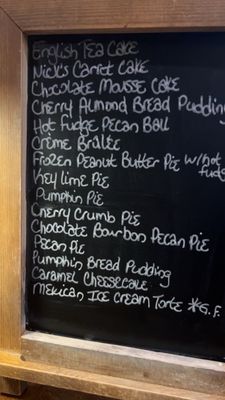 English Tea Cake
Nick's Carrot Cake
Chocolate Mousse Cake
Cherry Almond Bread Pudding
Hot Fudge Pecan Ball
Crème Brûlée
Frozen Peanut Butter Pie w/hot
fudge
Key Lime Pie
Pumpkin Pie
Cherry Crumb Pie
Chocolate Bourbon Pecan Pie
Pecan Pie
Pumpkin Bread Pudding
Caramel Cheesecake
Mexican Ice Cream Torte *G.F.